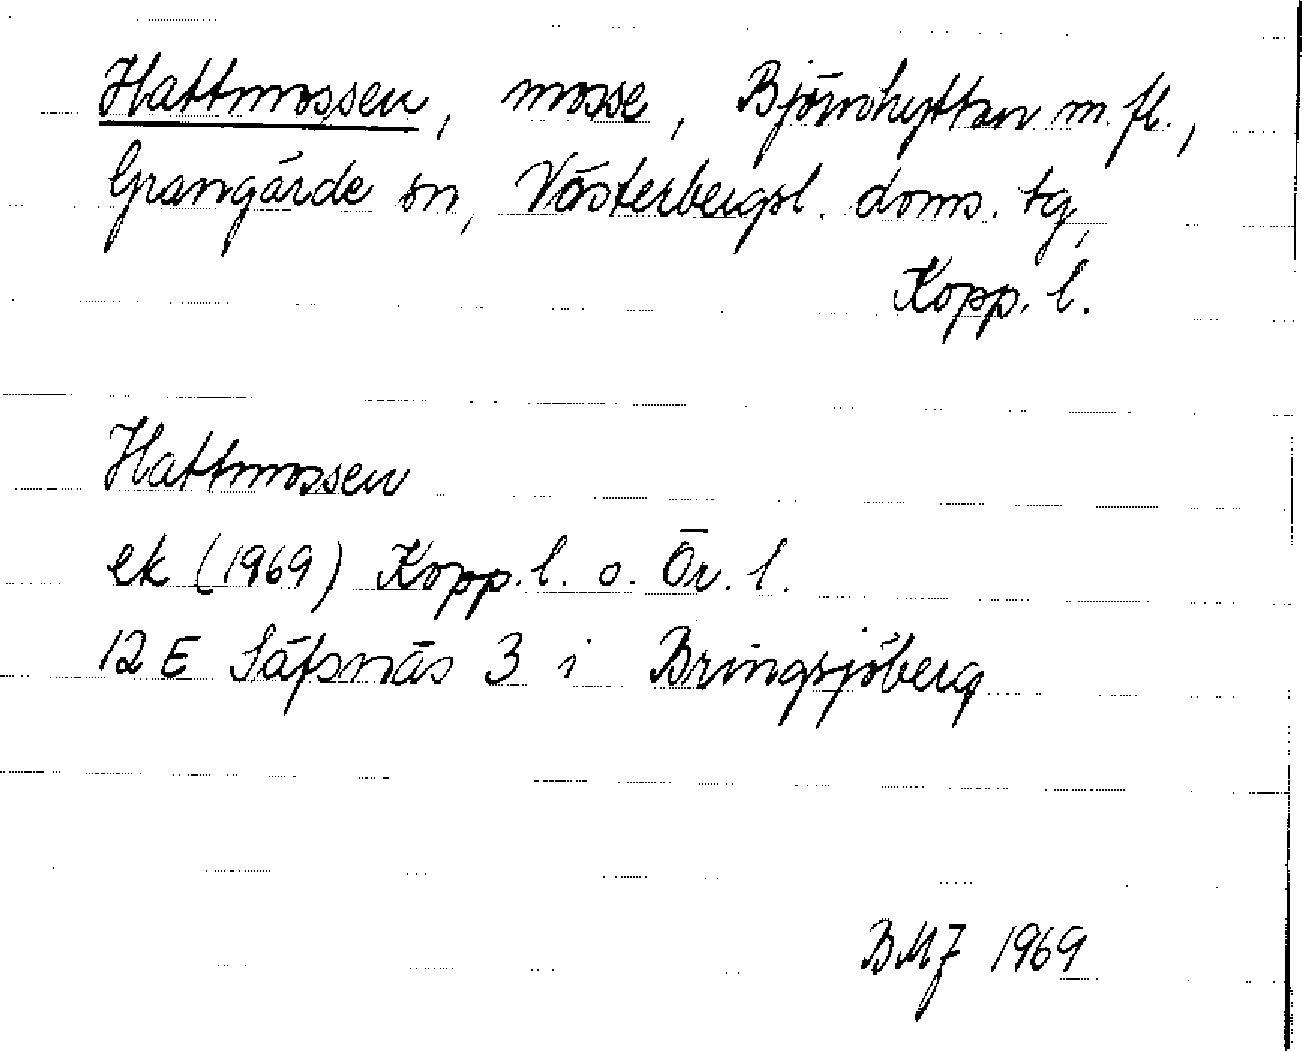 Hattmossen, mosse, Björnhyttan m. fl.,
Grangärde sn, Västerbergsl. doms. tg,
Kopp. l.
Hattmossen
ek (1969) Kopp. l. o. Ör. l.
12 E Säfsnäs 3 i Bringsjöberg
BMJ 1969